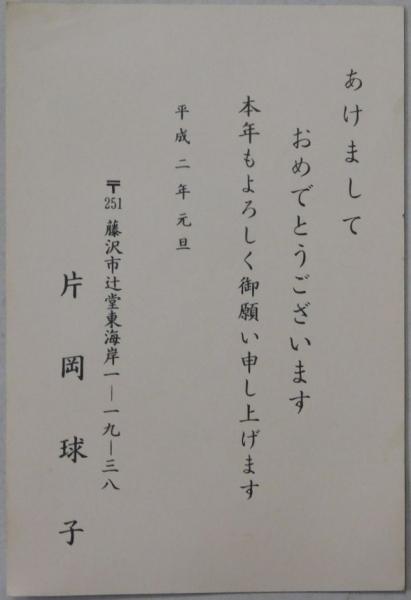 あけまして
おめでとうございます
本年もよろしく御願い申し上げます
平成二年元旦
〒251 藤沢市辻堂東海岸一―一九―三八
片岡球子